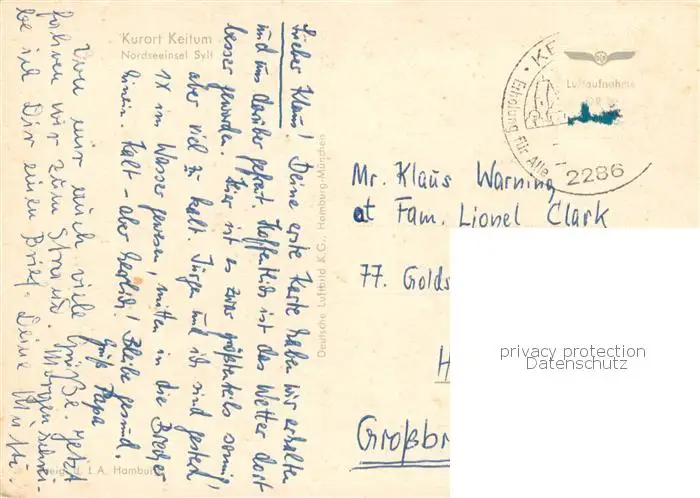 Kurort Keitum
Nordseeinsel Sylt
Lieber Klaus! Deine erste Karte haben wir erhalten
und uns darüber gefreut. Hoffentlich ist das Wetter dort
besser geworden. Hier ist es zwar größtenteils sonnig,
aber viel zu kalt. Jürgen und ich sind gestern
1X im Wasser gewesen, mitten in die Brecher
hinein. Kalt - aber herrlich! Bleibe gesund.
Gruß Papa
Von mir auch viele Grüße. Jetzt
fahren wir zum Strand. Morgen schrei-
be ich Dir einen Brief. Deine Mutti.
Deutsche Luftbild K.G., Hamburg-München
KE
Erholung für Alle
2286
Luftaufnahme
Mr. Klaus Warning
at Fam. Lionel Clark
77. Golds
H
Großbr
privacy protection
Datenschutz
L.A. Hamburg